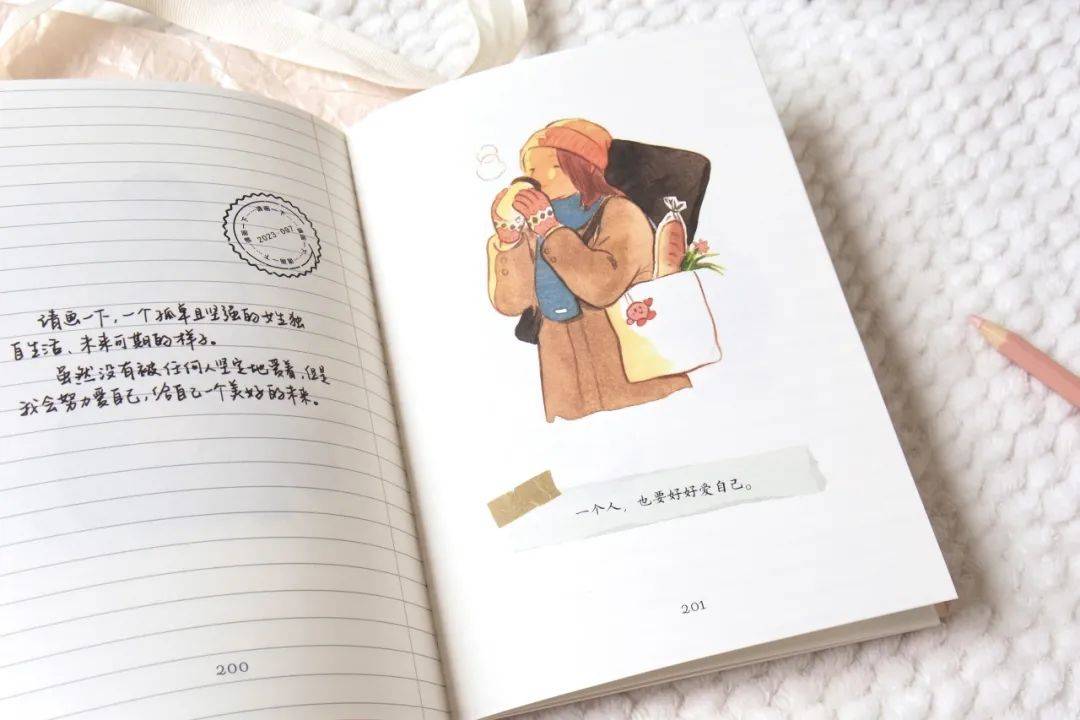 2023·097
请画一下，一个孤单且坚强的女生独
自生活、未来可期的样子。
虽然没有被任何人坚定地爱着，但是
我会努力爱自己，给自己一个美好的未来。
200
一个人，也要好好爱自己。
201